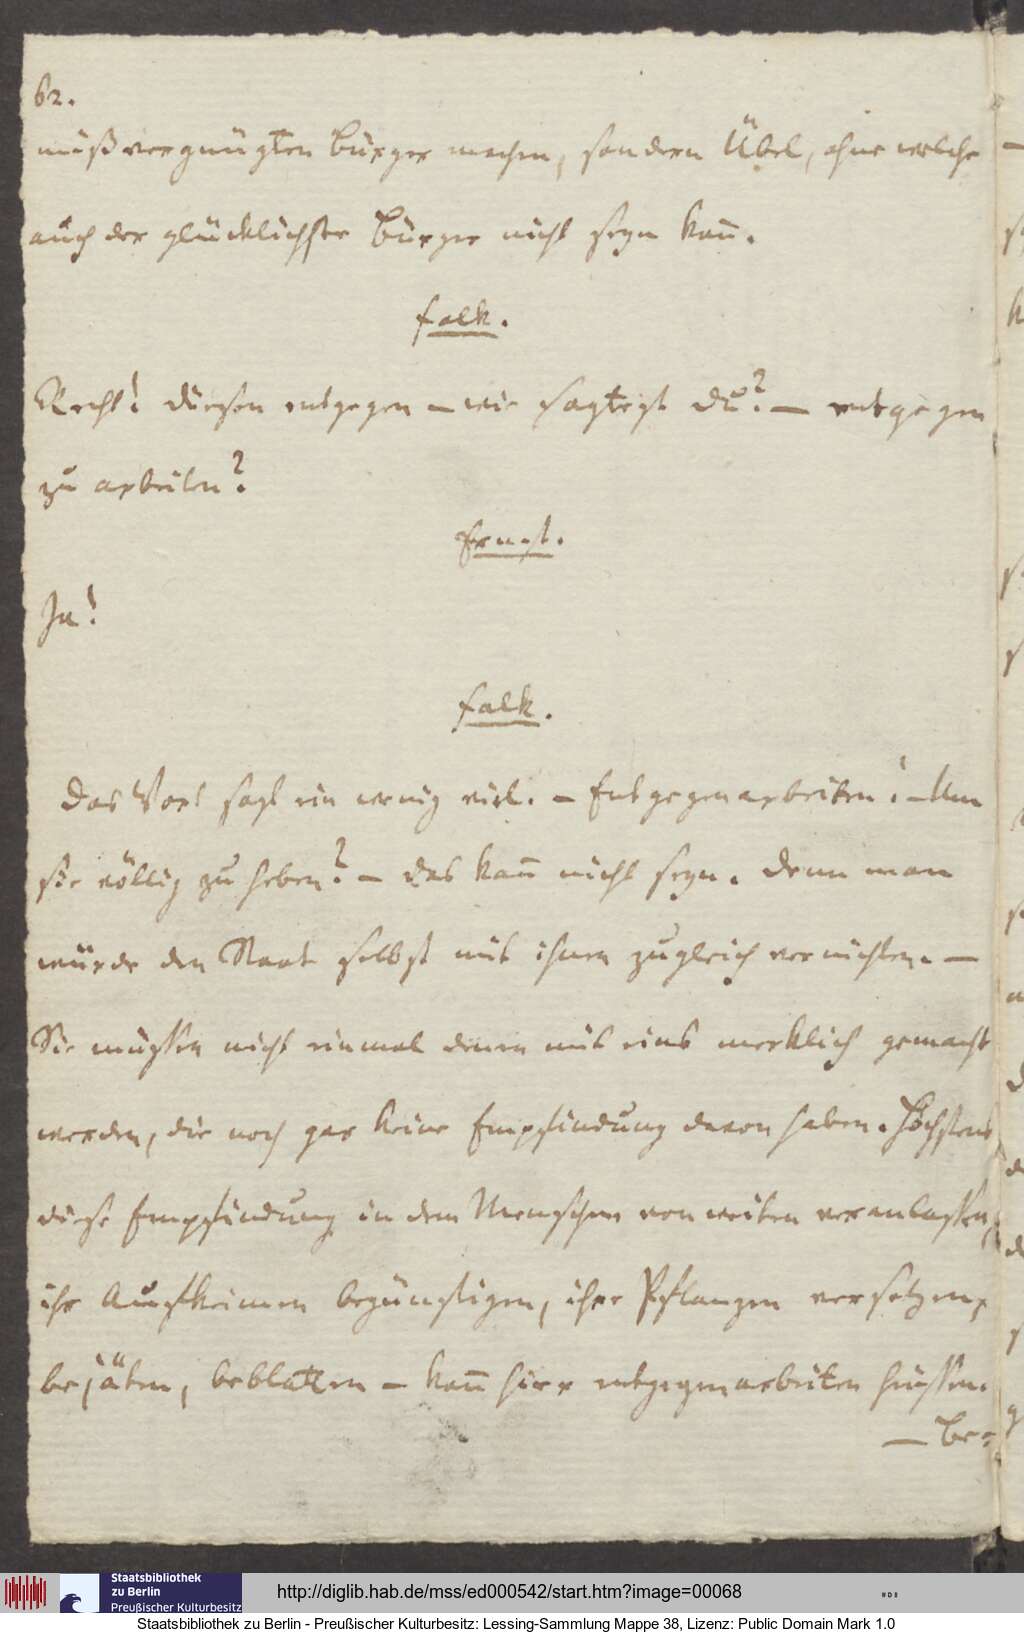 62.
mißvergnügten Bürger machen, sondern Übel, ohne welche
auch der glücklichste Bürger nicht seyn kañ.
Falk.
Recht! diesen entgegen – wie sagtest du? – entgegen
zu arbeiten?
Ernst.
Ja!
Falk.
Das Wort sagt ein wenig viel. – Entgegenarbeiten! – Um
sie völlig zu heben? – Das kañ nicht seyn. Denn man
würde den Staat selbst mit ihnen zugleich vernichten. –
Sie müssen nicht einmal denen mit eins merklich gemacht
werden, die noch gar keine Empfindung davon haben. Höchstens
diese Empfindung in dem Menschen von weiten veranlassen,
ihr Aufkeimen begünstigen, ihre Pflanzen versetzen,
bejäten, beblatten – kañ hier entgegenarbeiten heissen.
– Be-
Staatsbibliothek
zu Berlin
Preußischer Kulturbesitz
http://diglib.hab.de/mss/ed000542/start.htm?image=00068
Staatsbibliothek zu Berlin - Preußischer Kulturbesitz: Lessing-Sammlung Mappe 38, Lizenz: Public Domain Mark 1.0